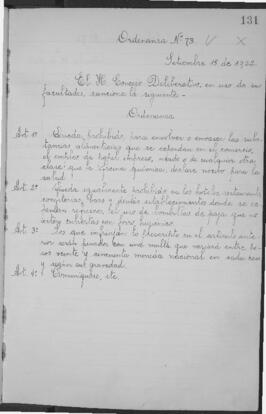 131
Ordenanza Nº 73. V X
Setiembre 18 de 1922.
El H. Concejo Deliberativo, en uso de sus
facultades, sanciona la siguiente -
Ordenanza
Art. 1º Queda prohibido, para envolver o envasar las subs-
tancias alimenticias que se expendan en el comercio,
el empleo de papel impreso, usado o de cualquier otra
clase que la Oficina Química, declare nocivo para la
salud.
Art. 2º Queda igualmente prohibido en los hoteles, restaurants
confiterías, bares y demás establecimientos donde se ex-
penden refrescos, el uso de pajas que no
estén cubiertas con papel higiénico.
Art. 3º Los que infrinjan lo prescrito en el artículo ante-
rior serán penados con una multa que variará entre
pesos veinte y cincuenta moneda nacional en cada caso
y según su gravedad.
Art. 4º Comuníquese, etc.